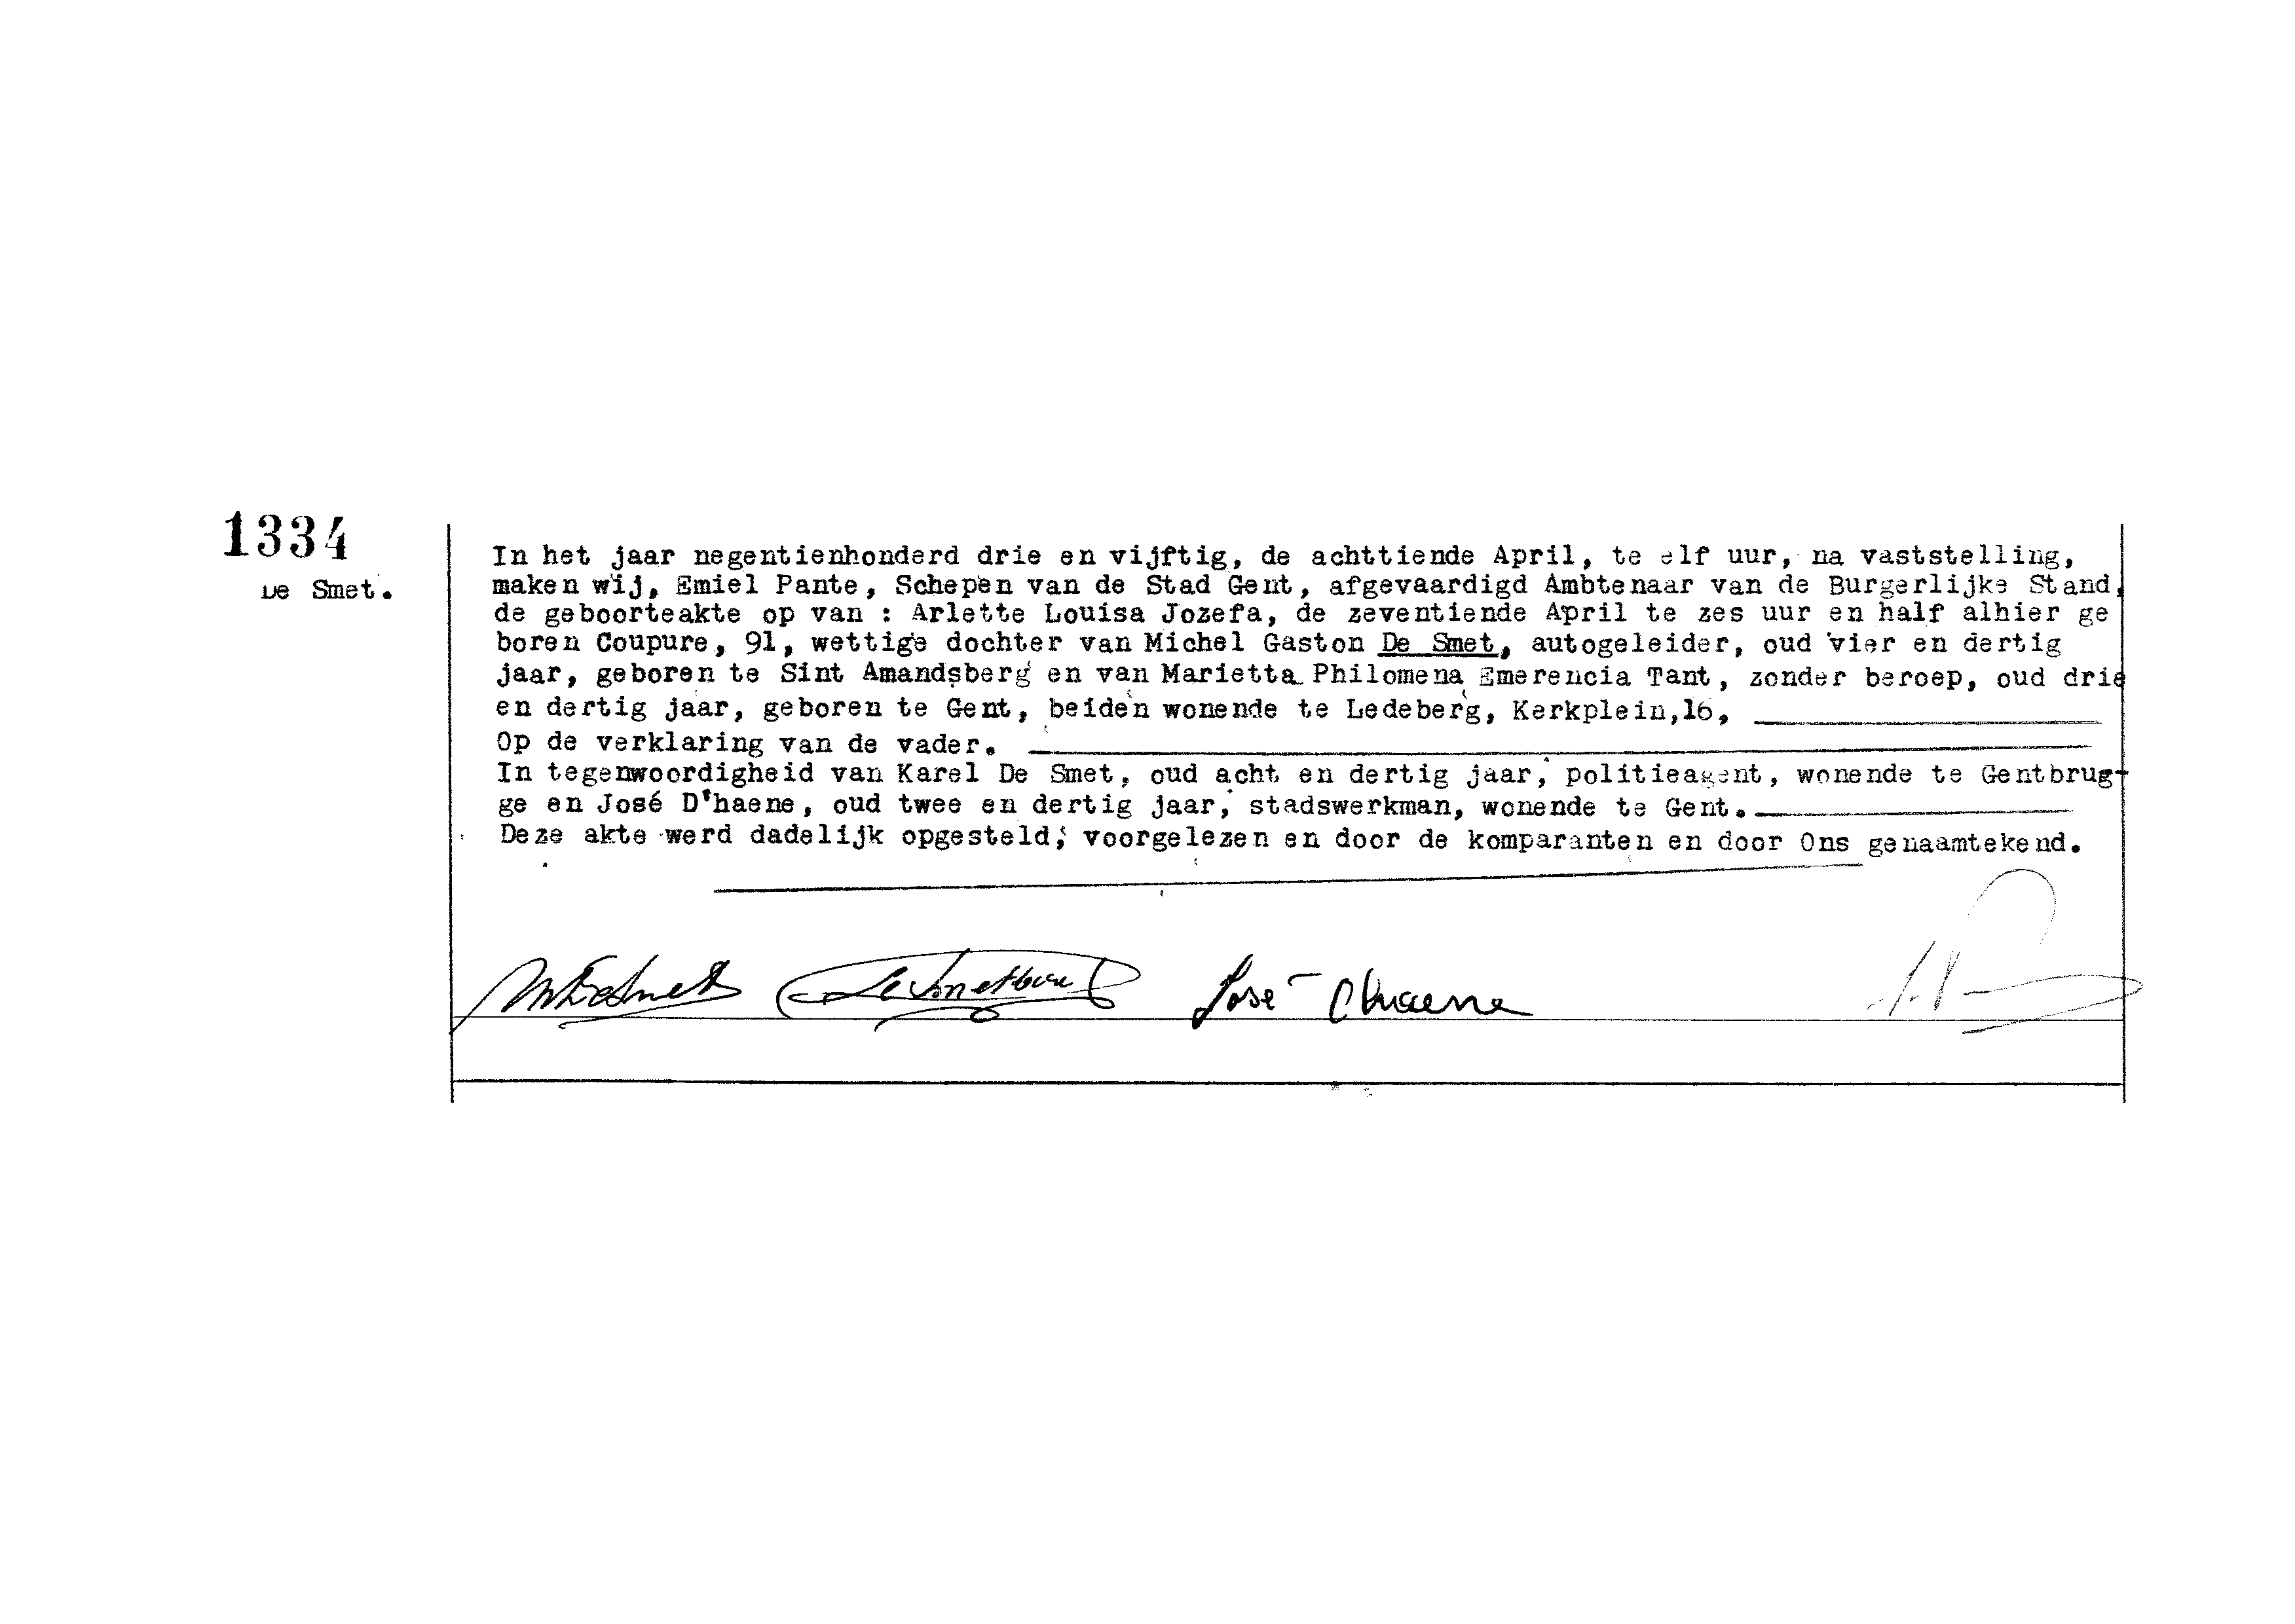 1334
De Smet.
In het jaar negentienhonderd drie en vijftig, de achttiende April, te elf uur, na vaststelling,
maken wij, Emiel Pante, Schepen van de Stad Gent, afgevaardigd Ambtenaar van de Burgerlijke Stand,
de geboorteakte op van : Arlette Louisa Jozefa, de zeventiende April te zes uur en half alhier ge
boren Coupure, 91, wettige dochter van Michel Gaston De Smet, autogeleider, oud vier en dertig
jaar, geboren te Sint Amandsberg en van Marietta Philomena Emerencia Tant, zonder beroep, oud drie
en dertig jaar, geboren te Gent, beiden wonende te Ledeberg, Kerkplein,16,
Op de verklaring van de vader.
In tegenwoordigheid van Karel De Smet, oud acht en dertig jaar, politieagent, wonende te Gentbrug-
ge en José D'haene, oud twee en dertig jaar, stadswerkman, wonende te Gent.
Deze akte werd dadelijk opgesteld, voorgelezen en door de komparanten en door Ons genaamtekend.
José Dhaene